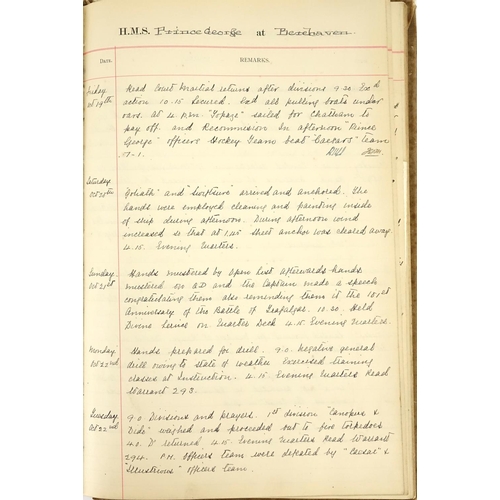 H.M.S. Prince George at Berehaven.
Date. REMARKS.
Friday Read Court Martial returns after divisions 9.30 Exd
Oct 19th action 10.15 Secured. Exd all pulling boats under
oars. at 4. P.M. "Topaze" sailed for Chatham to
pay off and Recommision. In afternoon "Prince
George" officers Hockey Team beat "Caesar's" Team
7-1.
Saturday Goliath" and "Swiftsure" arrived and anchored. The
Oct 20th hands were employed cleaning and painting inside
of ship during afternoon. During afternoon wind
increased so that at 1.45 sheet anchor was cleared away
4.15. Evening Quarters.
Sunday Hands mustered by Open List afterwards hands
Oct 21st mustered on Q.D and the Captain made a speech
congratulating them also reminding them it the 101st
Anniversary of the Battle of Trafalgar. 10.30. Held
Divine Service on Quarter Deck 4.15. Evening Quarters.
Monday Hands prepared for drill. 9.0. Negative general
Oct 22nd drill owing to state of weather Exercised training
classes at Instruction. 4.15. Evening Quarters Read
Warrant 293.
Tuesday 9.0 Divisions and prayers. 1st division "Canopus &
Oct 22nd Dido" weighed and proceeded out to fire torpedoes
4.0. D" returned 4.15. Evening Quarters Read Warrant
294. P.M. Officers team were defeated by "Caesar" &
"Illustrious" officers team.